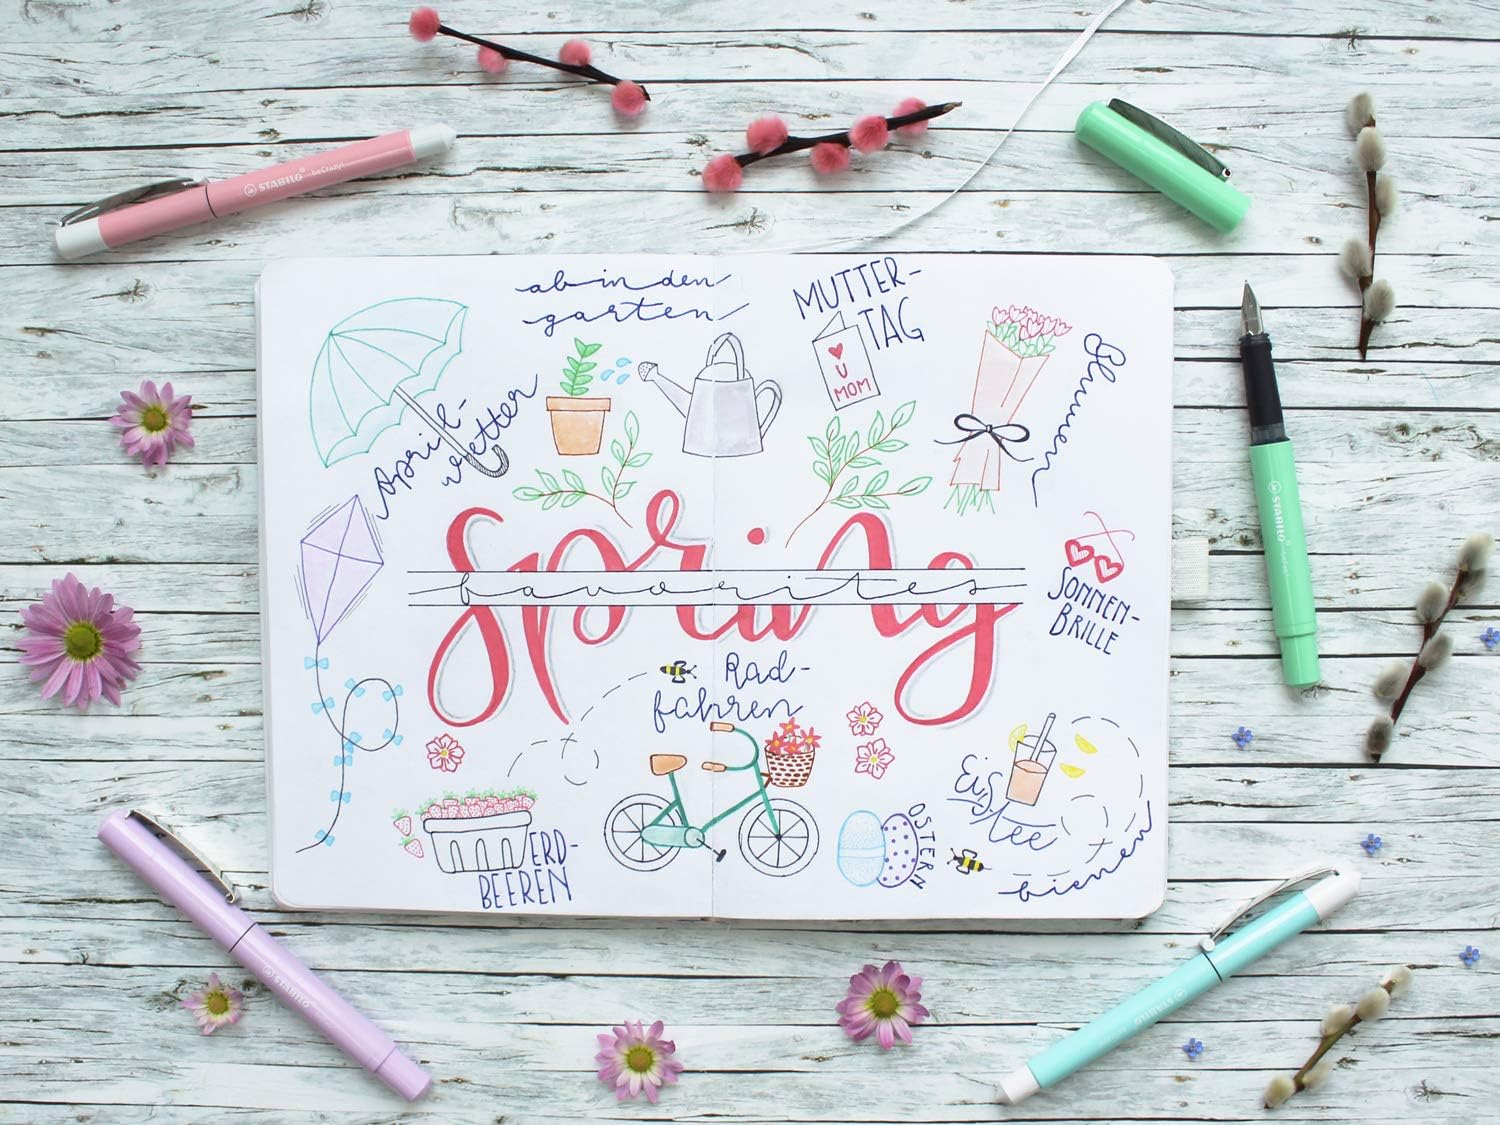 STABILO beCrazy!
ab in den
garten
MUTTER-
TAG
U
MOM
April-
wetter
Blumen
spring
favorites
SONNEN-
BRILLE
STABILO
Rad-
fahren
Eis
tee
ERD-
BEEREN
OSTERN
bienen
STABILO
STABILO